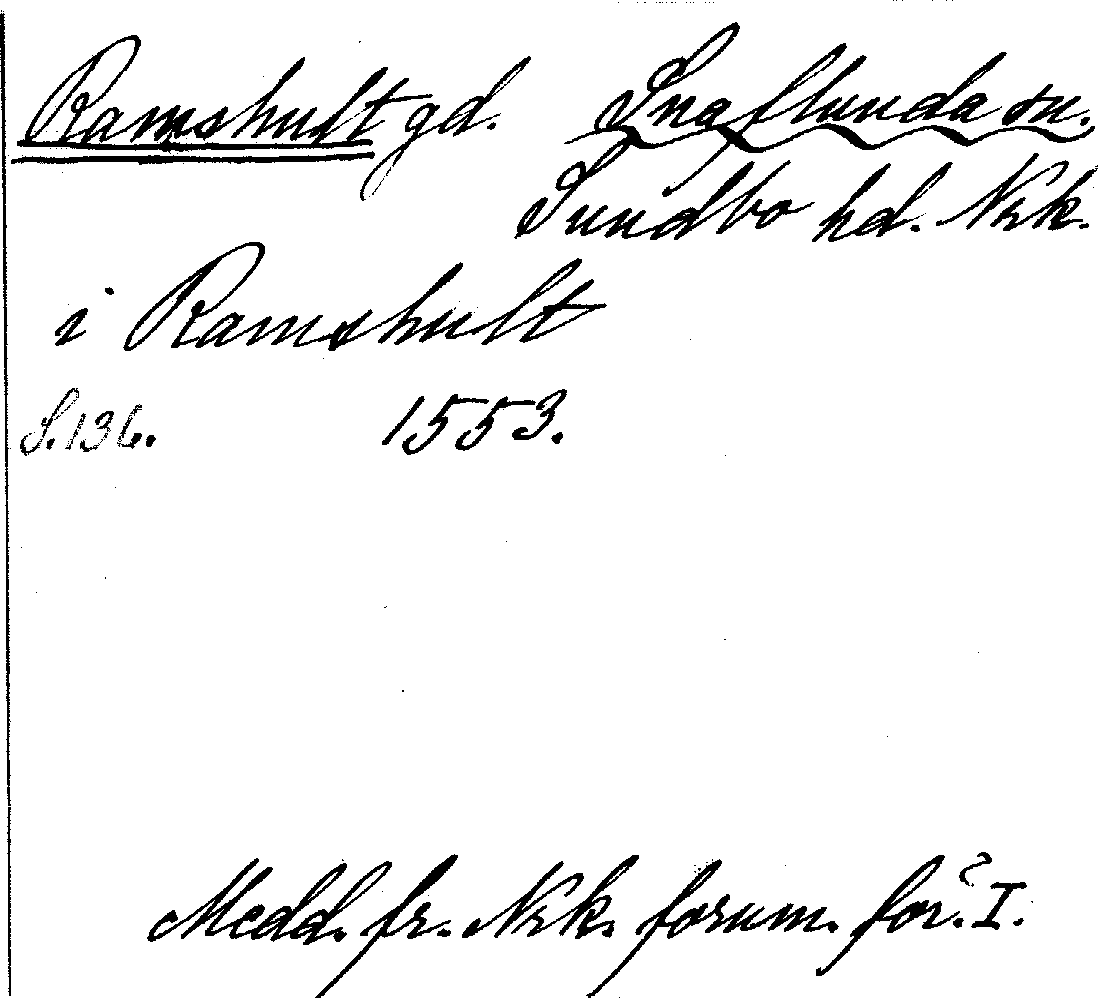 Ramshult gd. Snaflunda sn.
Sundbo hd. Nrk.
i Ramshult
S. 136. 1553.
Medd. fr. Nrk. fornm. för. I.